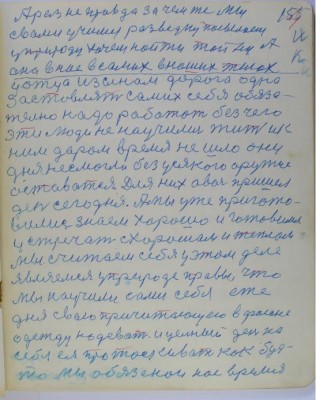 А раз не правда зачем же мы 155
своими учимся разведку посылаем
у природу хочем найти той бы А
она в нас в самих внешних телах
у отца из сыном дорога одна
Заставлять самих себя обяза-
тельно надо работать без чего
эти люди не научились жить их
ним даром время не шло они
дня не смогли без усякого оружие
оставатся Для них авот пришел
ден сегодня. А мы уже пригото-
вились знаем хорошо и готовимся
устречат с хорошам и теплом
Мы считаем себя у этом деле
являемся у природе правы, что
мы научили сами себя еже
дня свого причитающего в фасоне
одежду надеват. и целый ден на
себя ея протоскиват как буд-
то мы обязаной нас время